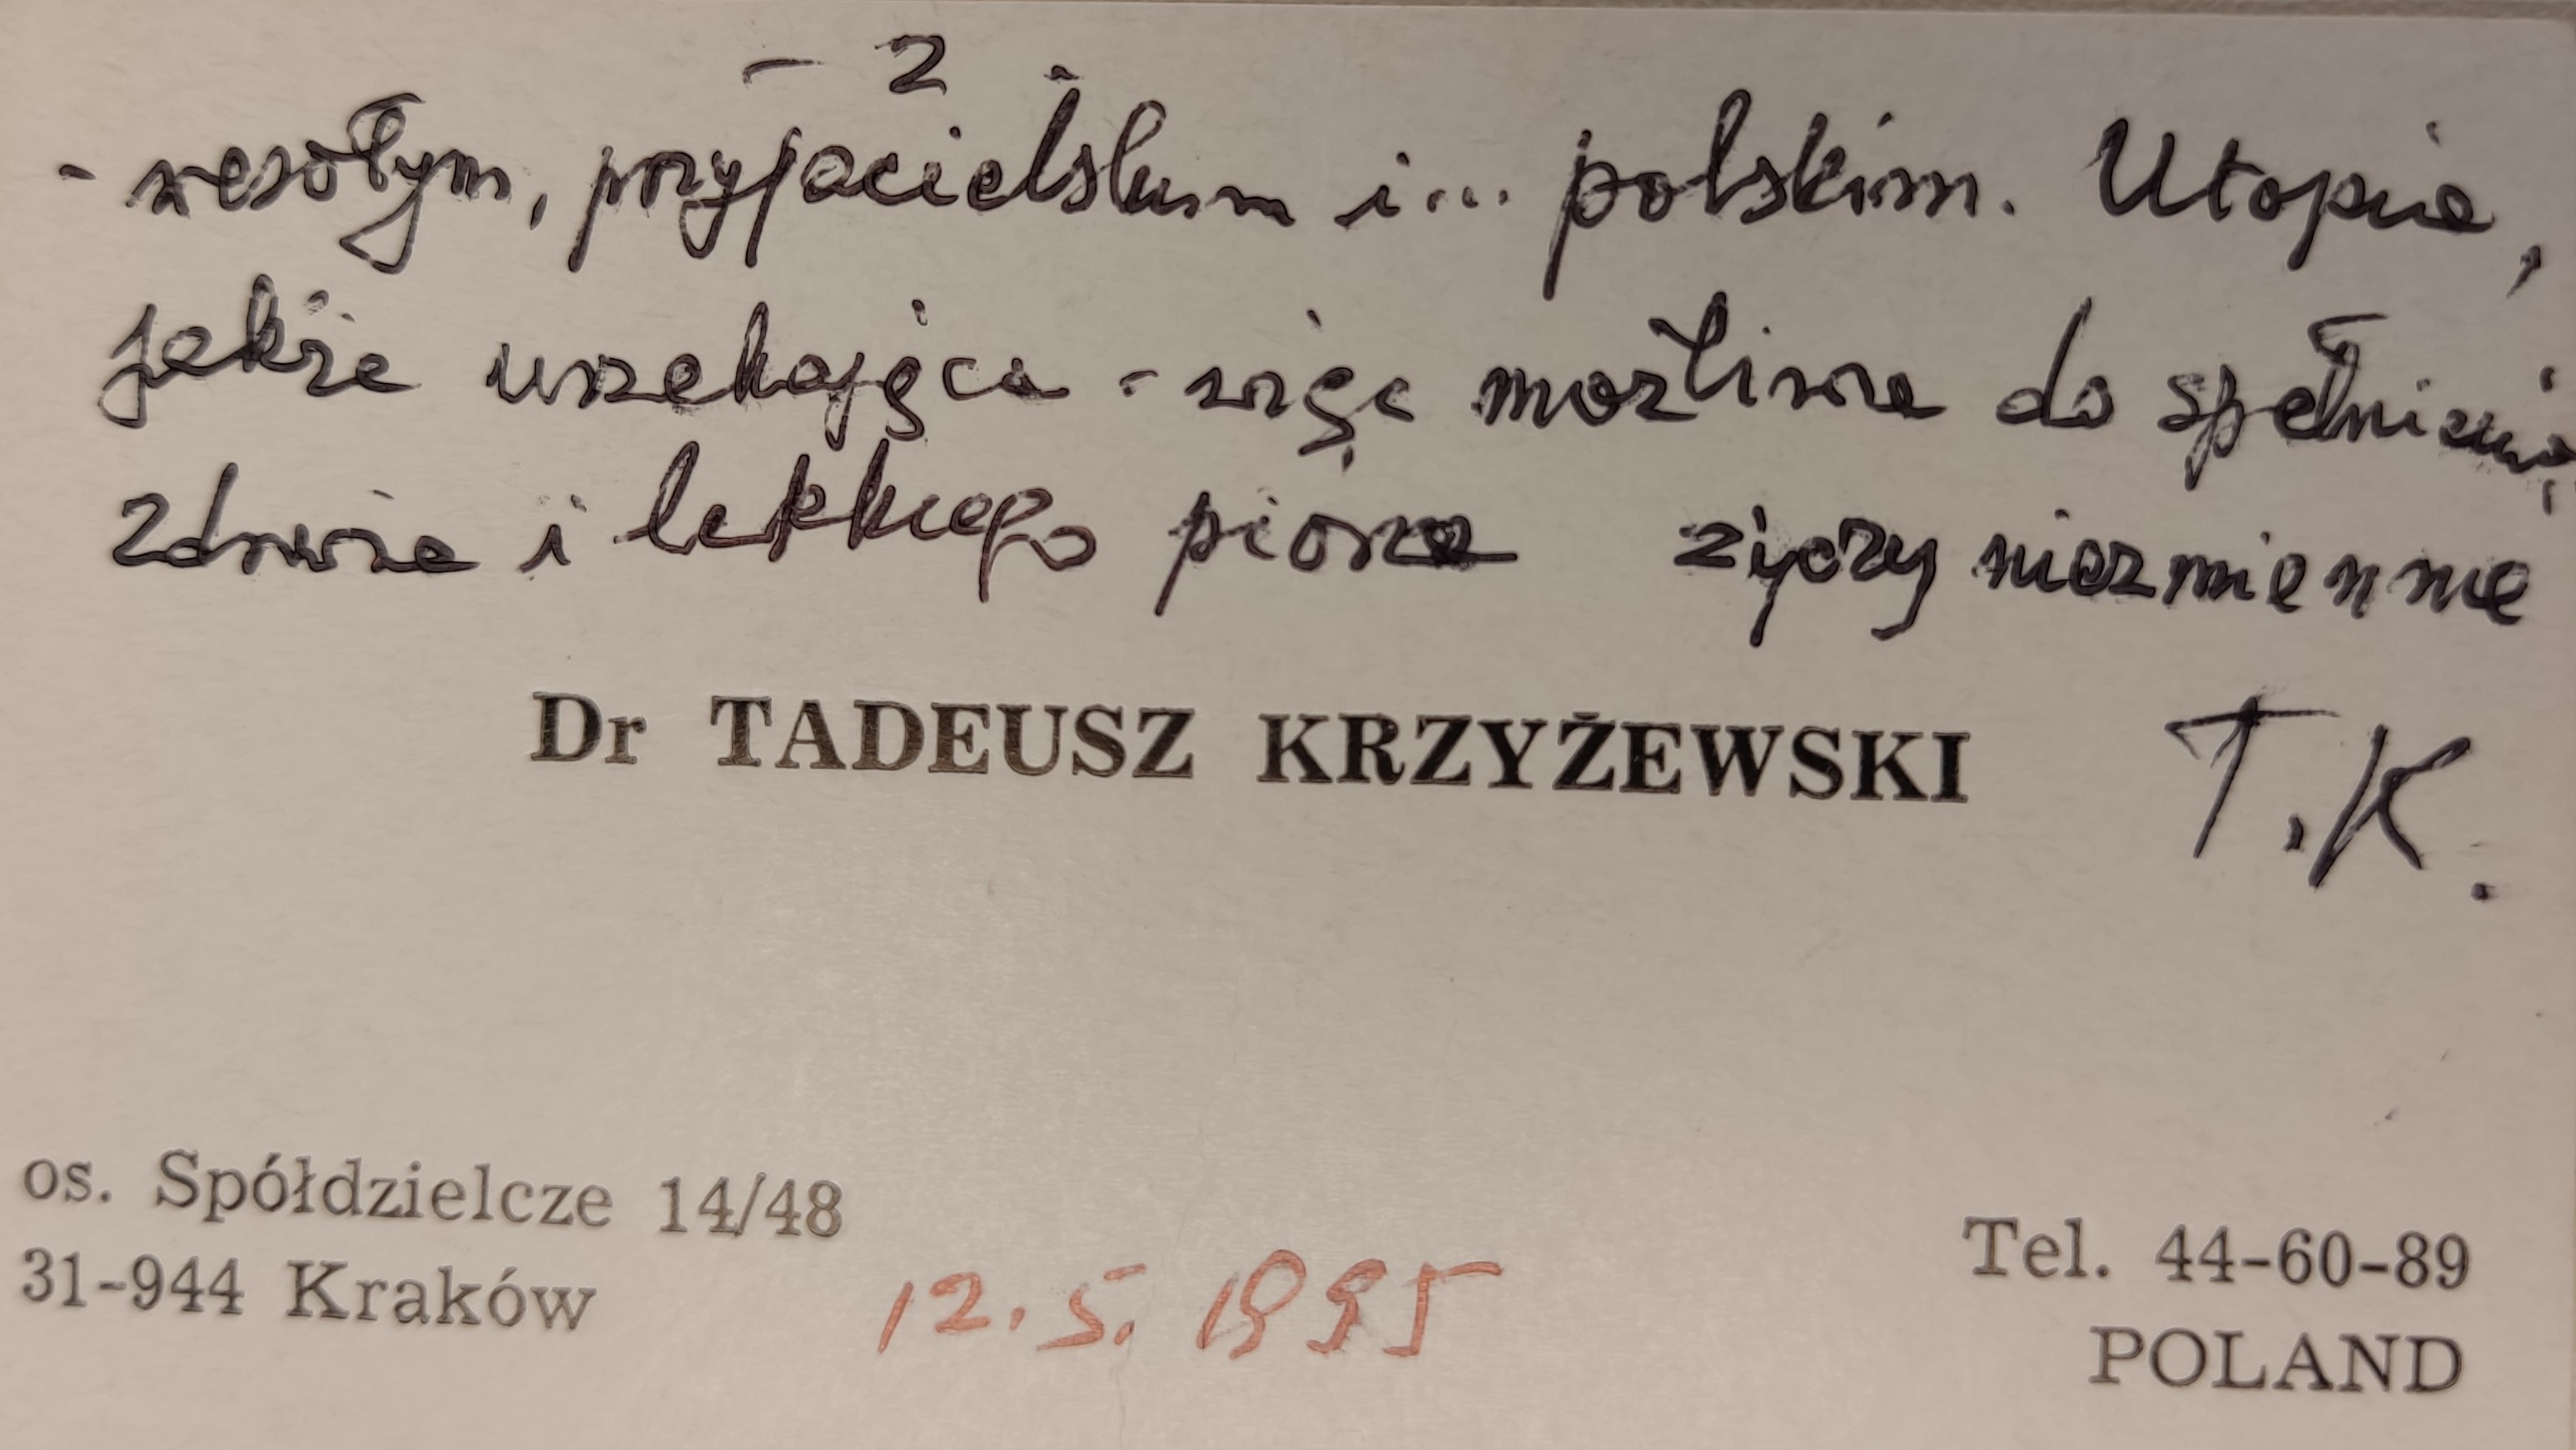 - 2
- wesołym, przyjacielskim i... polskim. Utopia,
jakże urzekająca - więc możliwa do spełnienia,
Zdrowia i lekkiego pióra życzy niezmiennie
Dr TADEUSZ KRZYŻEWSKI T.K.
os. Spółdzielcze 14/48
31-944 Kraków
12.5.1995
Tel. 44-60-89
POLAND